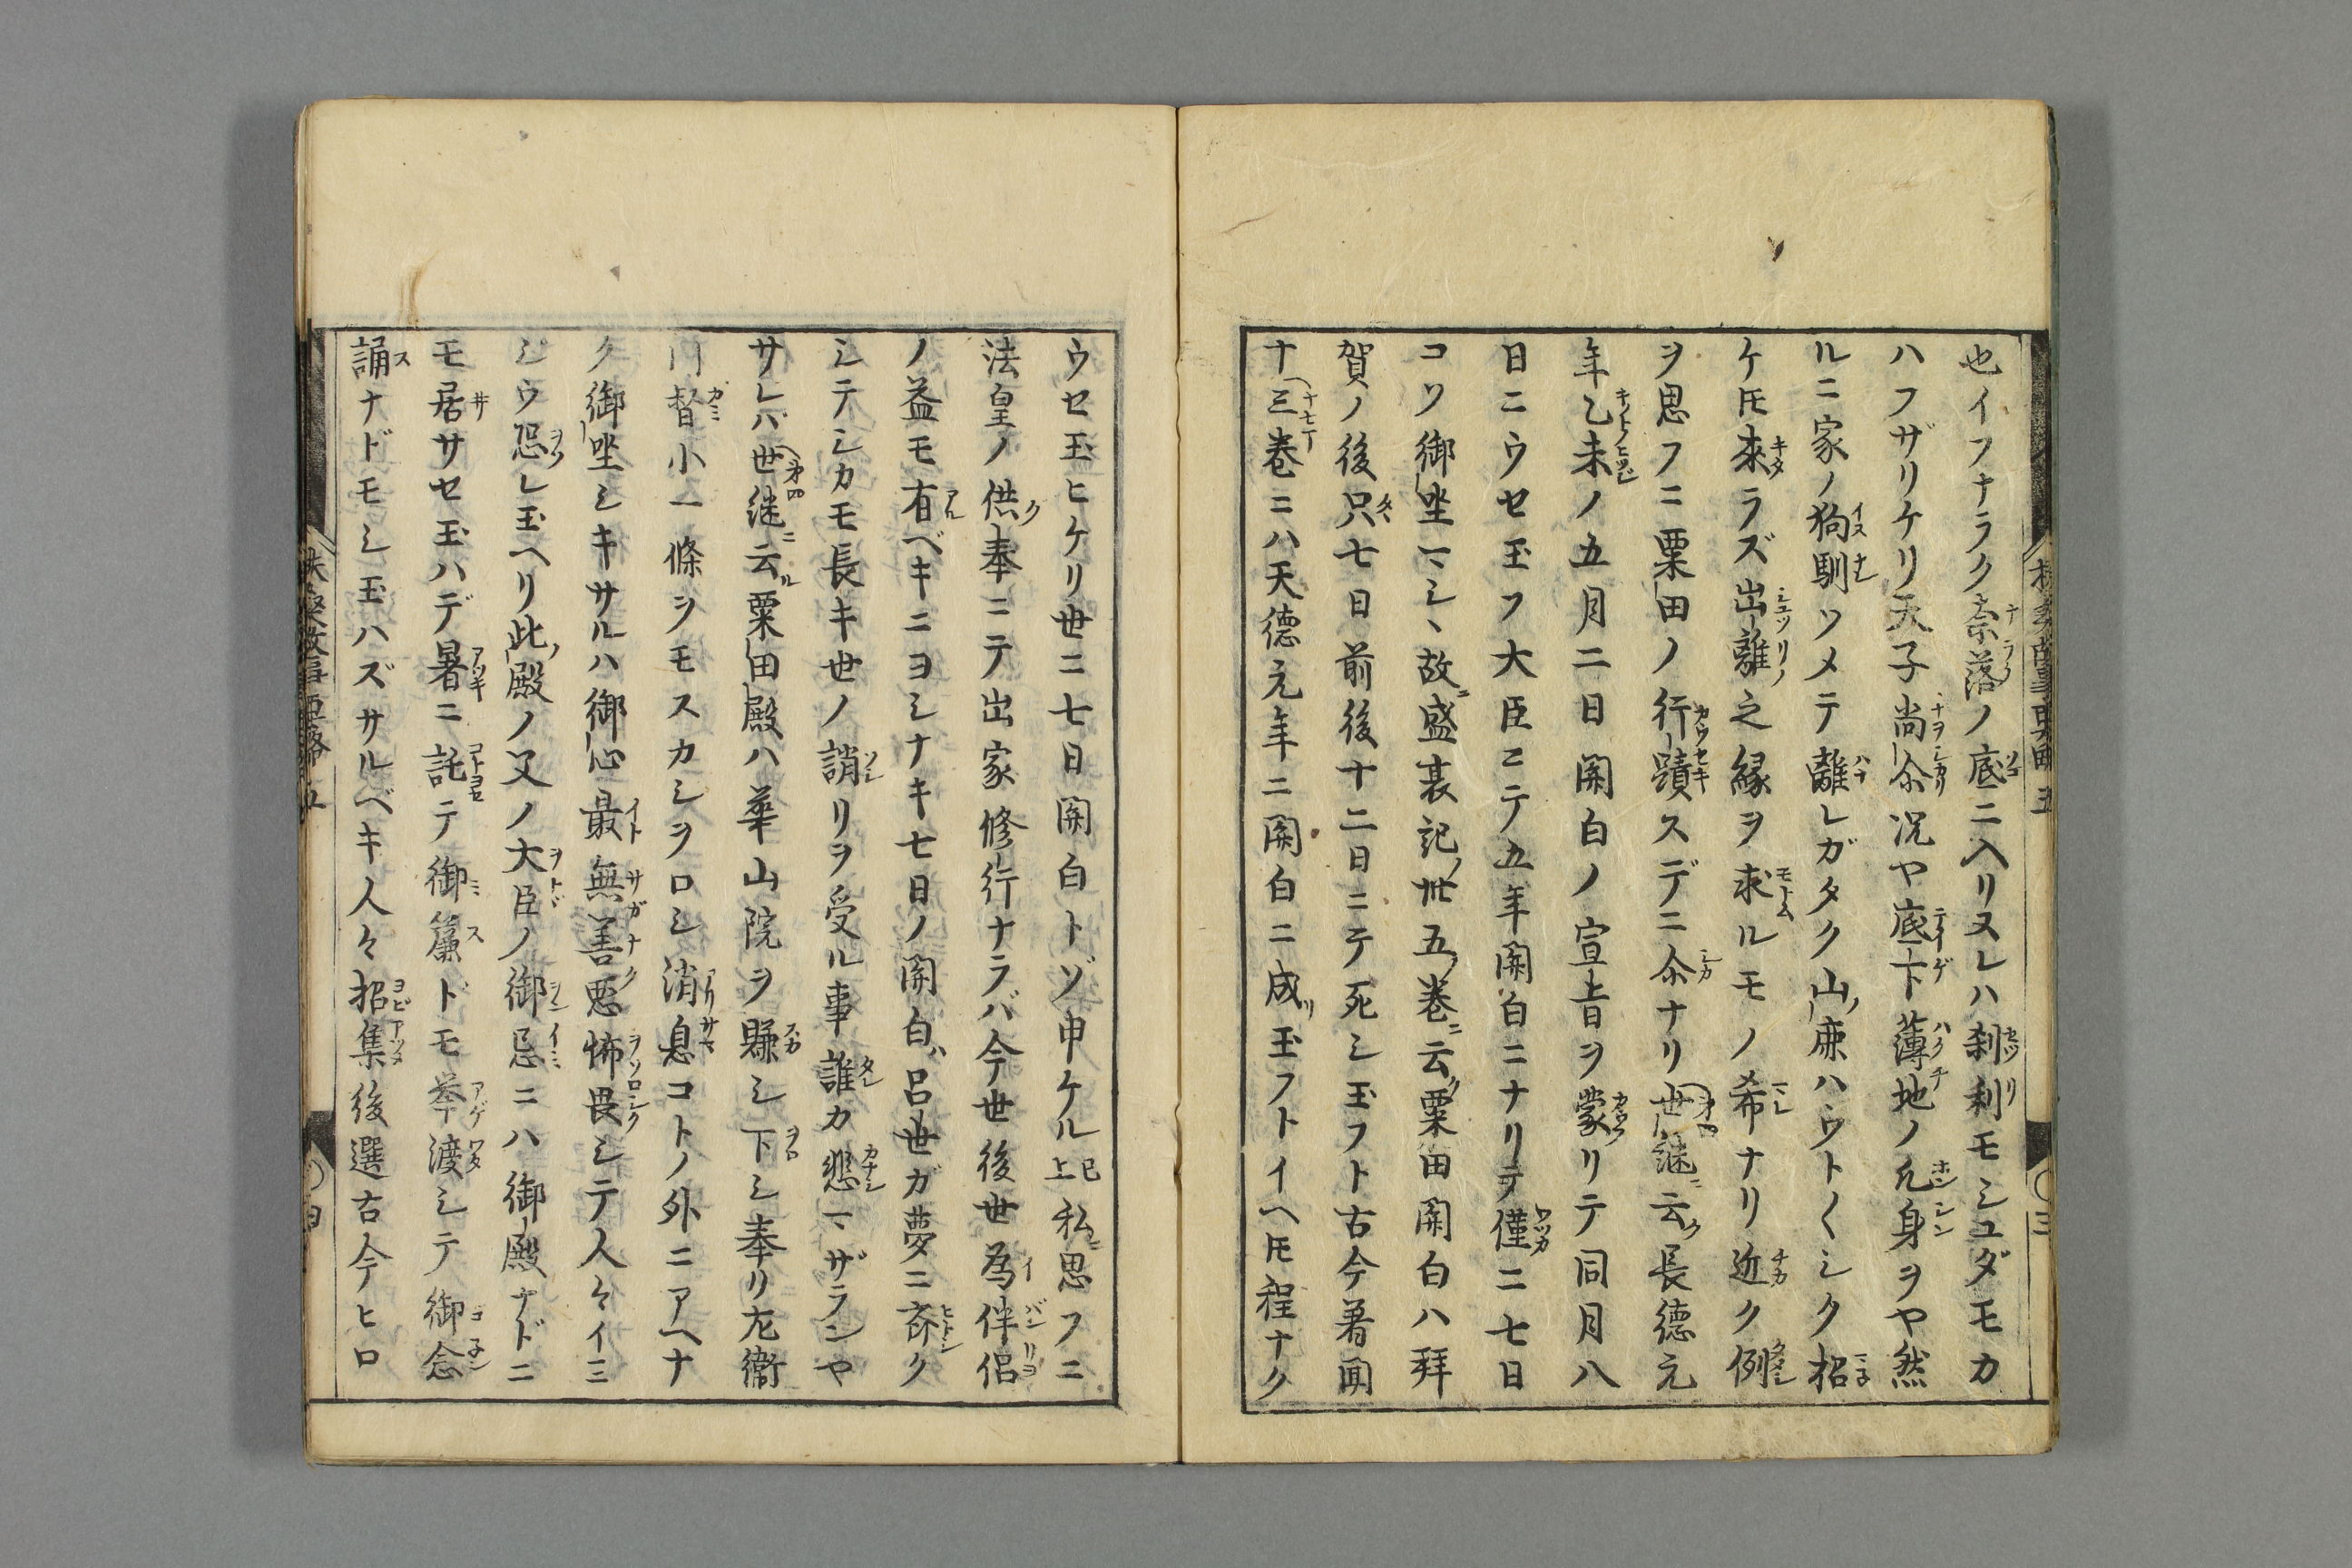 也イフナラク奈落ノ底ニ入リヌレハ刹利モシユダモカ
ハフザリケリ天子尚尒況ヤ底下薄地ノ凡身ヲヤ然
ルニ家ノ狗馴ソメテ離レガタク山ノ鹿ハウト〱シク招
ケ𪜈來ラズ出離之縁ヲ求ルモノ希ナリ近ク例
ヲ思フニ粟田ノ行蹟スデニ尒ナリ世継ニ云ク長德元
年乙未ノ五月二日関白ノ宣旨ヲ蒙リテ同月八
日ニウセ玉フ大臣ニテ五年関白ニナリテ僅ニ七日
コソ御坐マシヽ故ニ盛衰記ノ卅五ノ巻ニ云ク粟田関白ハ拜
賀ノ後只七日前後十二日ニテ死シ玉フト古今著聞
十三巻ニハ天德元年ニ関白ニ成リ玉フトイヘ𪜈程ナク
ウセ玉ヒケリ世ニ七日関白トゾ申ケル已上私ニ思フニ
法皇ノ供奉ニテ出家修行ナラバ今世後世為伴侶
ノ益モ有ベキニヨシナキ七日ノ関白ハ呂世ガ夢ニ齊ク
シテシカモ長キ世ノ誚リヲ受ル事誰カ悲マザランヤ
サレバ世継ニ云ル粟田殿ハ華山院ヲ賺シ下シ奉リ左衞
門督小一條ヲモスカシヲロシ消息コトノ外ニアヘナ
ク御坐シキサルハ御心最無善悪怖畏シテ人々イミ
ジウ恐レ玉ヘリ此ノ殿ノ父ノ大臣ノ御忌ニハ御殿ナドニ
モ居サセ玉ハデ暑ニ託テ御簾ドモ挙渡シテ御念
誦ナドモシ玉ハズサルベキ人々招集後選古今ヒロ